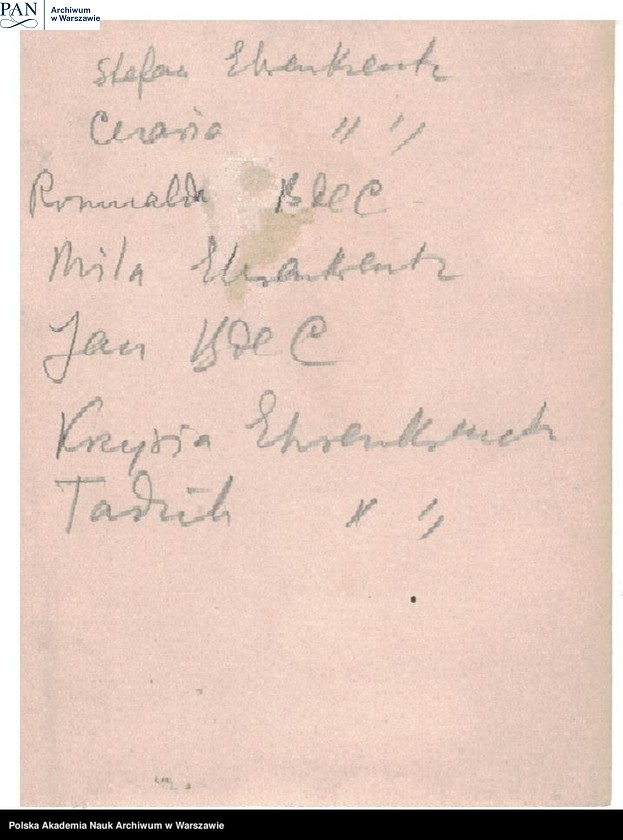 PAN
Archiwum
w Warszawie
Stefan Ehrenkreutz
Cezaria " "
Romualda BdeC
Mila Ehrenkreutz
Jan BdeC
Krzysia Ehrenkreutz
Tadzik " "
Polska Akademia Nauk Archiwum w Warszawie